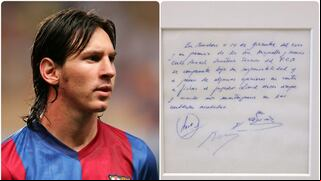 En Barcelona a 14 de Diciembre del 2000
y en presencia de los Minguella y Horacio
Carles Rexach Secretario Técnico del F.C.B
se compromete bajo su responsabilidad y
a pesar de algunas opiniones en contra
a fichar al jugador Lionel Messi siempre
y cuando nos mantengamos en las
cantidades acordadas